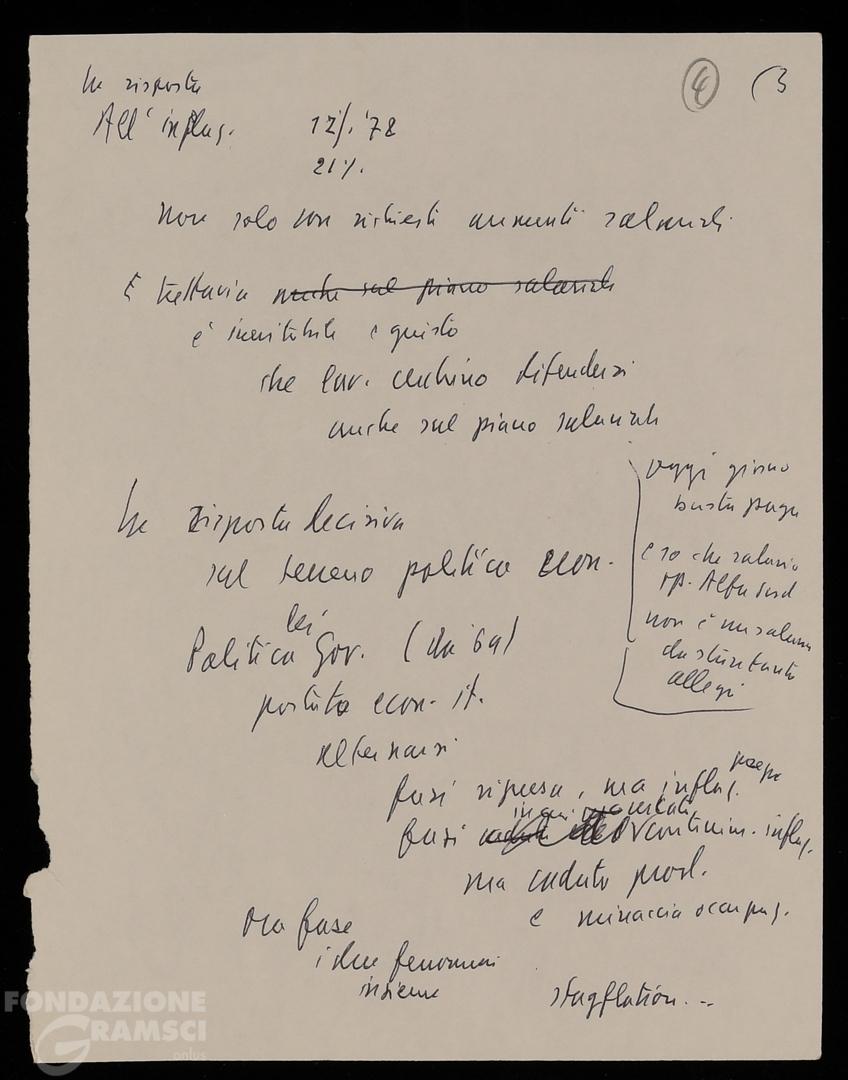 La risposta
All' inflaz. 12%. '78
21%.
(4) (3
non solo con richiesti aumenti salariali
E tuttavia anche sul piano salariale
è inevitabile e giusto
che lav. cerchino difendersi
anche sul piano salariale
La risposta decisiva
sul terreno politica econ.
Politica Gov. (da '64)
portato econ. it.
alternarsi
fasi ripresa, ma inflaz.
fasi in cui continua. inflaz.
ma caduta prod.
e minaccia occupaz.
Ora fase
i due fenomeni
insieme stagflation...
oggi giorno
busta paga
e so che salario
op. Alfa Sud
non è un salario
da stare tanto
allegri
FONDAZIONE
GRAMSCI
onlus